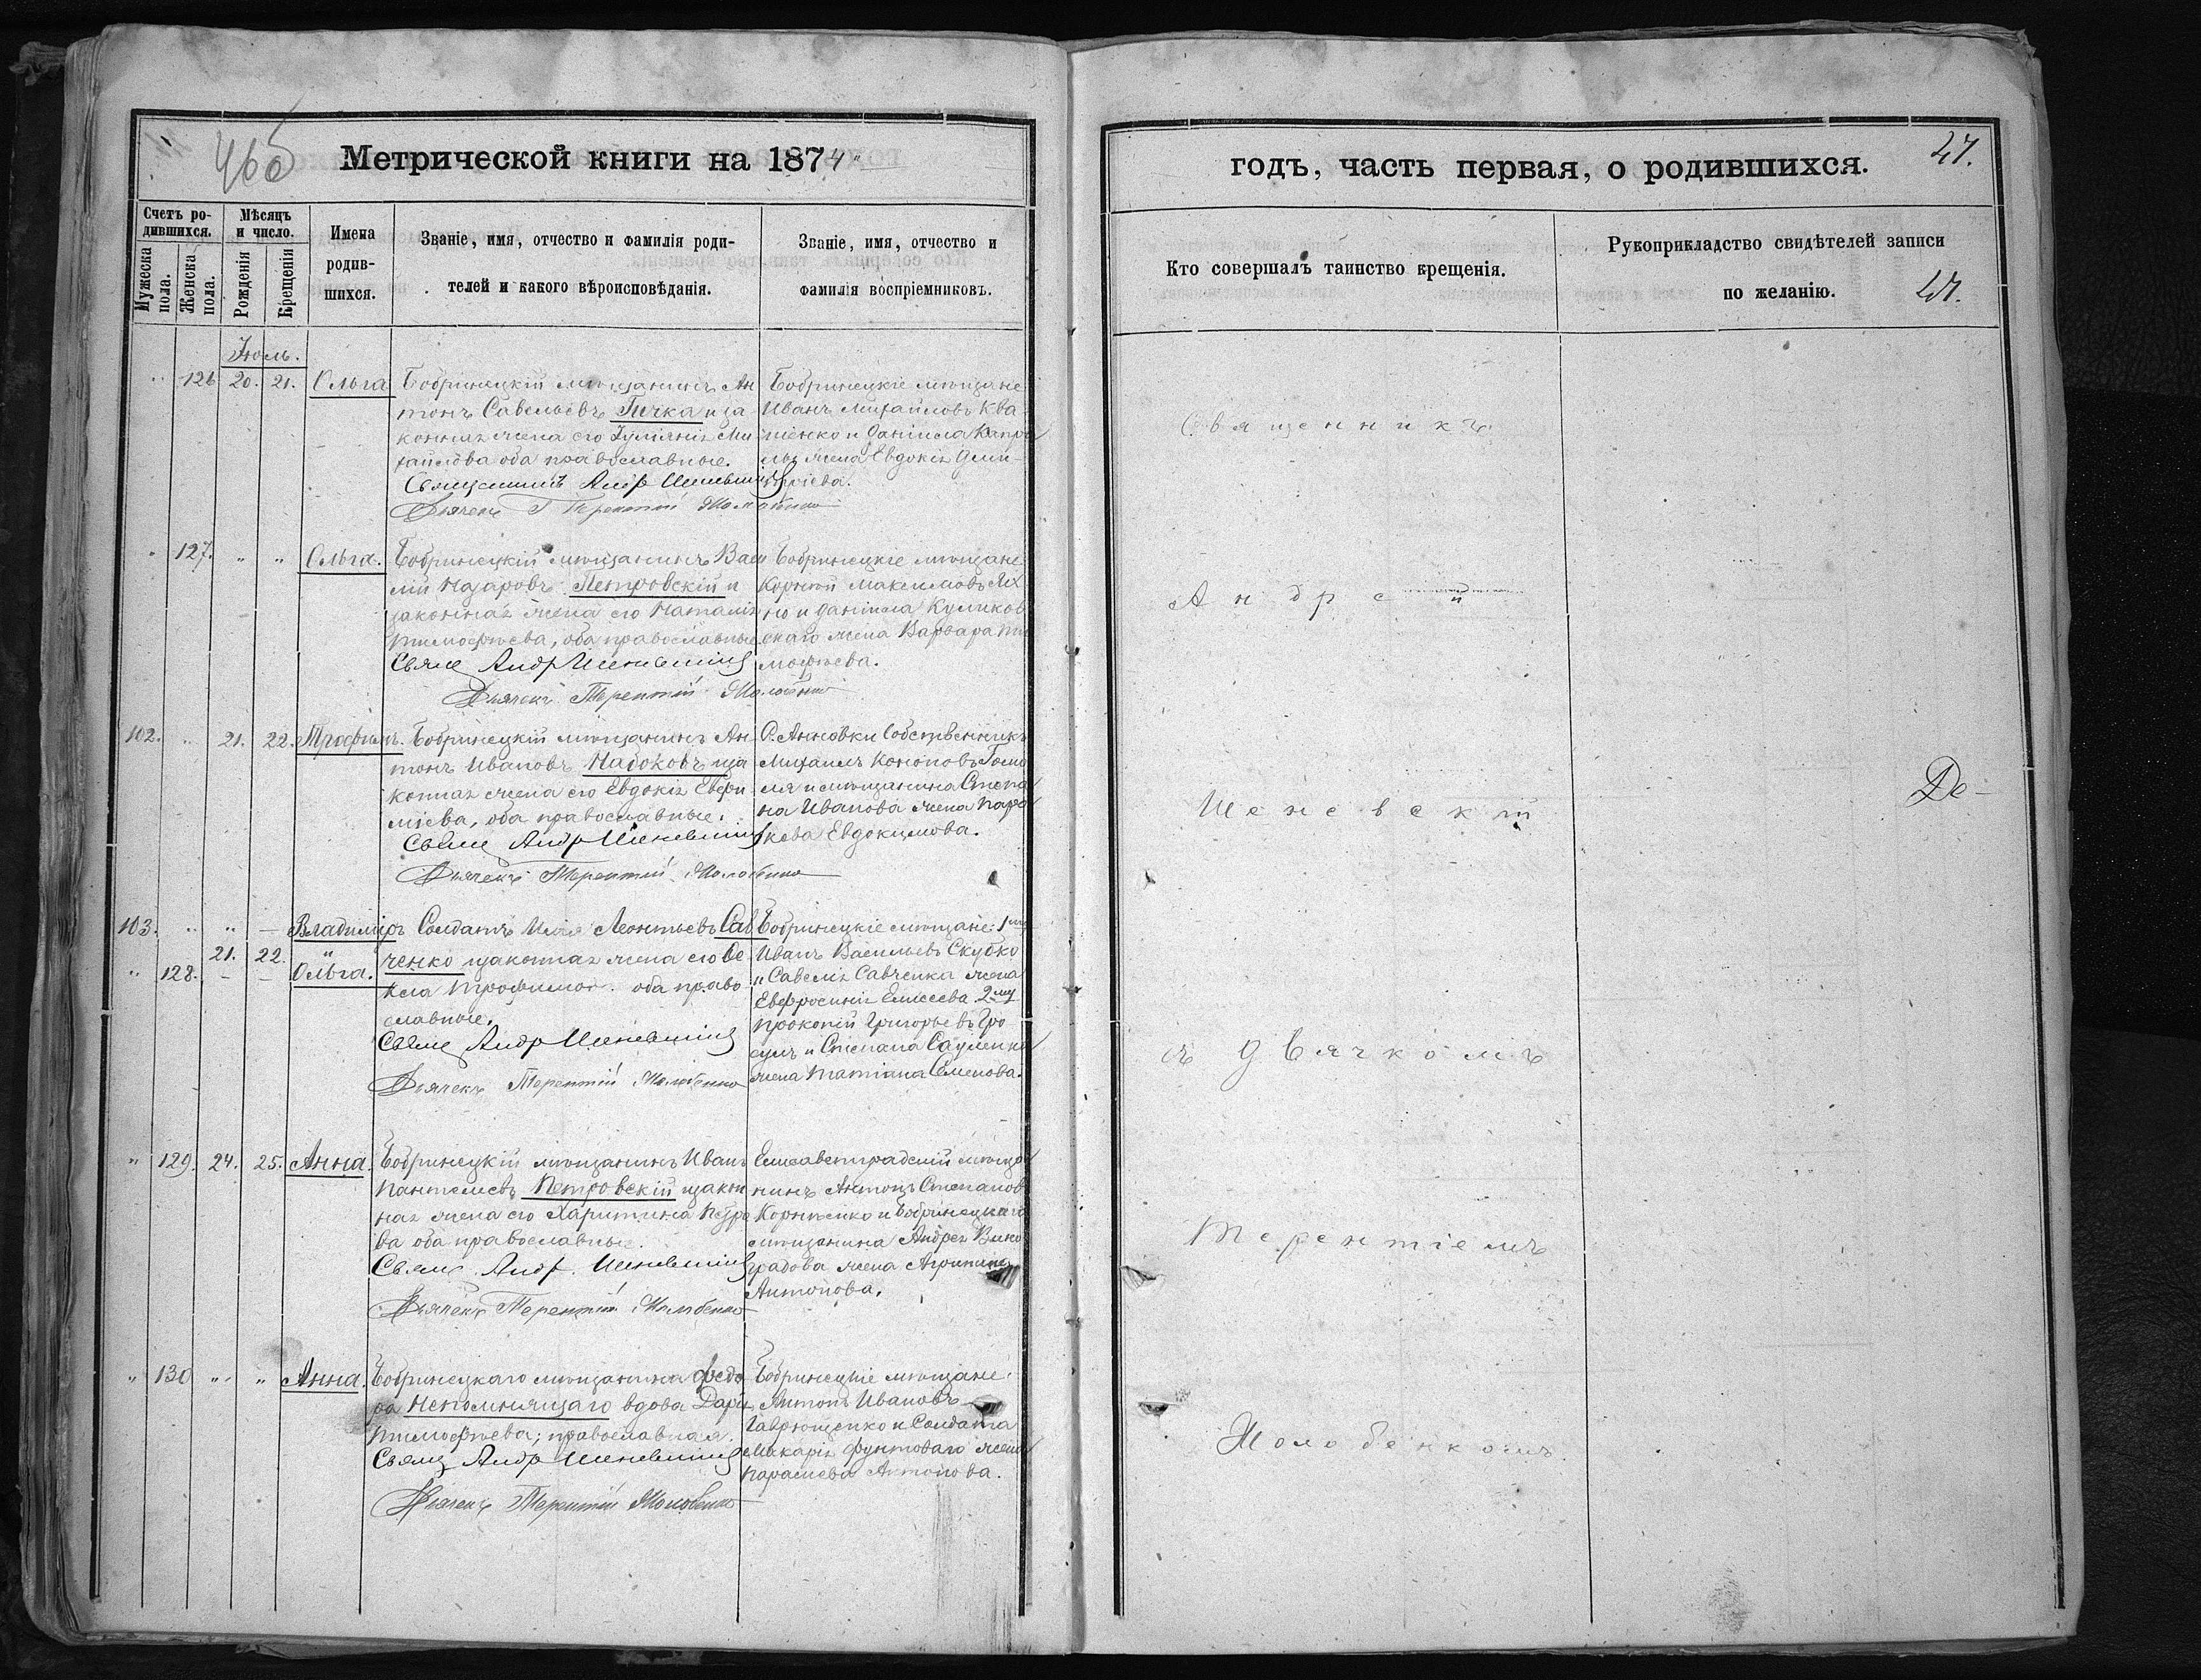 46б
Метрической книги на 1874
Счетъ ро-
дившихся.
Мужеска пола.
Женска пола.
Мѣсяцъ
и число.
Рожденія
Крещенія
Имена
родив-
шихся.
Званіе, имя, отчество и фамилія роди-
телей и какого вѣроисповѣданія.
Званіе, имя, отчество и
фамилія воспріемниковъ.
Іюль.
" 126 20. 21. Ольга
Бобринецкій мѣщанинъ Ан
тонъ Савельевъ Гичка и за
конная жена его Іуліанія Ми
хайлова оба православные.
Священникъ Андр Шеневскій
Дьячекъ Терентій Молобенко
Бобринецкіе мѣщане
Иванъ Михайловъ Ква
шенко и Даніила
жена Евдокія Дми-
тріева.
" 127. " " Ольга.
Бобринецкій мѣщанинъ Васи
лій Назаровъ Петровскій и
законная жена его Наталія
Тимофѣева, оба православные
Свящ Андр Шеневскій
Дьячекъ Терентій Молобенко
Бобринецкіе мѣщане
Корнѣй Максимовъ Ях
но и Даніила Куликов
скаго жена Варвара Ти
мофѣева.
102. " 21. 22. Трофимъ.
Бобринецкій мѣщанинъ Ан-
тонъ Ивановъ Набоковъ и за
конная жена его Евдокія Евфи-
міева, оба православные.
Свящ Андр Шеневскій
Дьячекъ Терентій Молобенко
С. Анновки Собственникъ
Михаилъ Кононовъ
и мѣщанина Степа
на Иванова жена Пара
кева Евдокимова.
103. " " — Владиміръ
21. 22. "
" 128. - - Ольга.
Солдатъ Илія Леонтьевъ Сав
ченко и законная жена его Ѳе
кла Трофимова. оба право-
славные.
Свящ Андр Шеневскій
Дьячекъ Терентій Молобенко
Бобринецкіе мѣщане: 1му
Иванъ Васильевъ Скубко
и Савелія Савченка жена
Евфросинія Елисеева 2му
Прокопій Григорьевъ Гро
сулъ и Степана Сауленка
жена Татіана Семенова.
" 129. 24. 25. Анна.
Бобринецкій мѣщанинъ Иванъ
Пантелиевъ Петровскій и закон
ная жена его Харитина Петро
ва оба православные.
Свящ Андр. Шеневскій
Дьячекъ Терентій Молобенко
Елисаветградскій мѣща
нинъ Антонъ Степанов
Корнѣенко и Бобринецкаго
мѣщанина Андрея Вино
градова жена Агрипина
Антонова.
" 130 " " Анна.
Бобринецкаго мѣщанина Ѳедо
ра Непомнящаго вдова Дарія
Тимофѣева; православная.
Свящ Андр Шеневскій
Дьячекъ Терентій Молобенко
Бобринецкіе мѣщане:
Антонъ Ивановъ
Гаврющенко и Солдата
Макарія Фунтоваго жена
Параскева Антонова.
годъ, часть первая, о родившихся.
47.
Кто совершалъ таинство крещенія.
Рукоприкладство свидѣтелей записи
по желанію.
47.
Священникъ
Андрей
Шеневскій
Де-
съ дьячкомъ
Терентіемъ
Молобенкомъ.